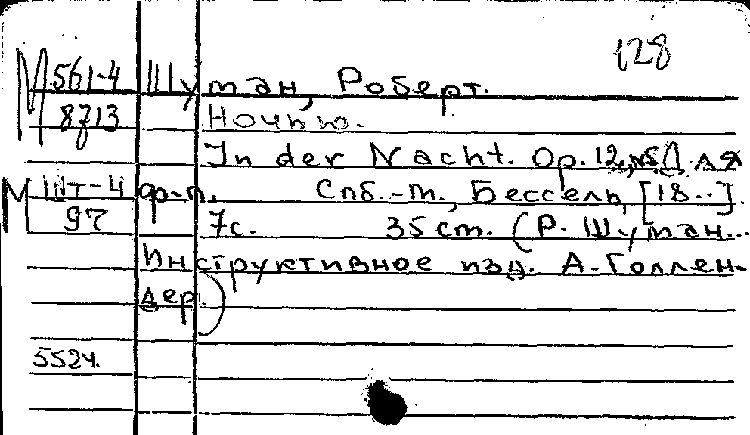 128
М 561-4 Шуман, Роберт.
8713 Ночью.
In der Nacht. Op. 12, №5 Для
М Шт-4 ф-п. Спб.-м., Бессель, [18..].
97 7с. 35 см. (Р. Шуман...
Инструктивное изд. А. Голлен-
дер)
5524.